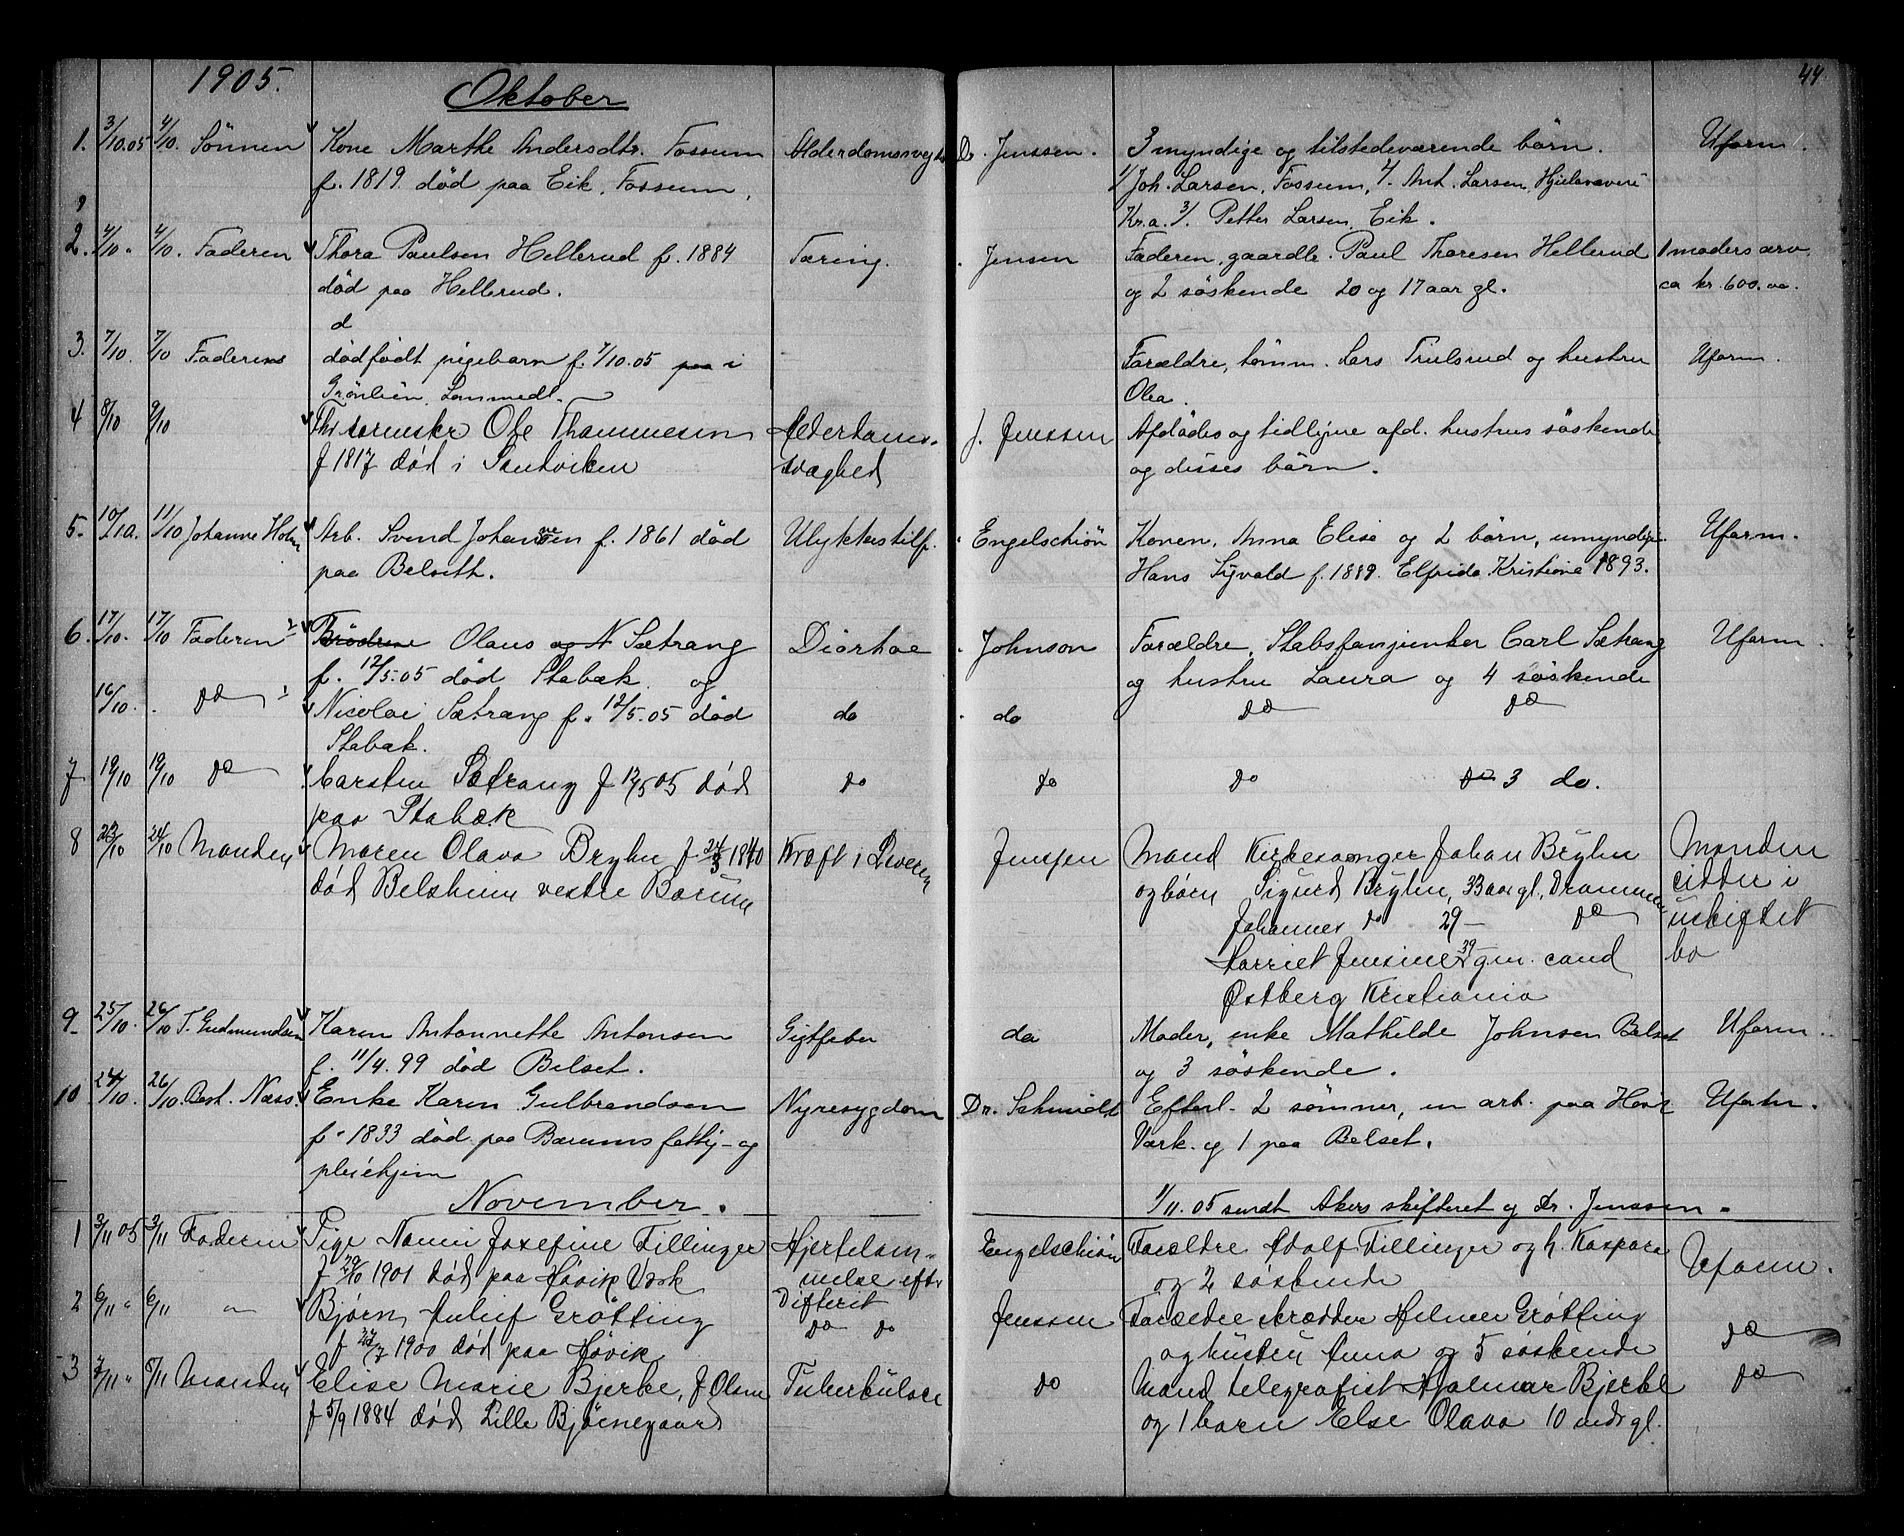 1905. Oktober 44
1. 3/10.05 4/10. Sønnen Kone Marthe Andersdtr. Fossum Alderdomssvagh. Dr. Jenssen. 3 myndige og tilstedeværende børn. Uform.
f. 1819 død paa Eik, Fossum, 1/ Joh. Larsen, Fossum, Ant. Larsen,
Kr.a. 3/. Petter Larsen, Eik.
2. 4/10. 4/10. Faderen Thora Paulsen Hellerud f. 1884 Tæring. Jensen Faderen, gaardbr. Paul Thoresen Hellerud 1 møders arv
død paa Hellerud. og 2 søskende 20 og 17 aar gl. ca kr. 600.00.
d
3. 7/10. 7/10 Faderens dødfødt pigebarn f. 7/10.05 paa i Forældre, tømm. Lars Trulsrud og hustru Uform.
Grønlien, Lommedl. Olea.
4 8/10 9/10 Ole Thommesen Alderdoms- J. Jenssen Afdødes og tidligere afd. hustrus søskende
f 1817 død i Sandviken svaghed og disses børn.
5. 10/10. 11/10 Johanne Holm Arb. Svend Johansen f. 1861 død Ulykkestilf. Engelschiøn Konen, Anna Elise og 2 børn, umyndige Uform.
paa Belseth. Hans Syvald f. 1889. Elfrida Kristiane 1893.
6. 17/10. 17/10 Faderen 2 Brødrene Olaus og N Sætrang Diarhoe Johnson Forældre, Stabsfanejunker Carl Sætrang Uform.
f. 12/5.05 død Stabæk. og og hustru Laura og 4 søskende
16/10. do 1 Nicolai Sætrang f. 12/5.05 død do do do do
Stabæk.
7 19/10 19/10 do Carsten Sætrang f 12/5 05 død do do do do 3 do.
paa Stabæk
8 23/10 24/10 Manden Maren Olava Bryhn f 24/3 1840 Kræft i Leveren Jenssen Mand Kirkesanger Johan Bryhn Manden
død Belsheim vestre Bærum og børn Sigurd Bryhn, 33 aar gl, Drammen sidder i
Johannes do 29 - do uskiftet
Harriet Jensine 39 gm. cand bo
Østberg Kristiania
9. 25/10. 26/10 T. Gudmundsen Karen Antonnette Antonsen Gigtfeber do Moder, enke Mathilde Johnsen Belset Uform.
f. 11/4.99 død Belset. og 3 søskende.
10. 24/10. 26/10 Best. Næss. Enke Karen Gulbrandsen Nyresygdom Dr. Schmidt Efterl. 2 sønner, en arb. paa Hov Uform.
f. 1833 død paa Bærums fattig- og Værk. og 1 paa Belset.
pleiehjem
November. 1/11.05 sendt Akers skifteret og Dr. Jenssen.
1 3/11 05 3/11 Faderen Pige Nanni Josefine Fillinger Hjertelam- Engelschiøn Forældre Adolf Fillinger og h. Kaspara Uform.
f 29/10 1901 død paa Høvik Værk melse efter og 2 søskende
Difterit
2 6/11 " 6/11 " Bjørn Grøtting do do Jenssen Forældre skrædder Hilmer Grøtting do
f 1900 død paa Høvik og hustru Anna og 5 søskende
3 7/11 " 5/11 Manden Elise Marie Bjerke, f Olsen Tuberkulose do Mand telegrafist Hjalmar Bjerke do
f 5/9 1884 død Lille Bjørnegaard og 1 barn Else Olava 10 mdr gl.